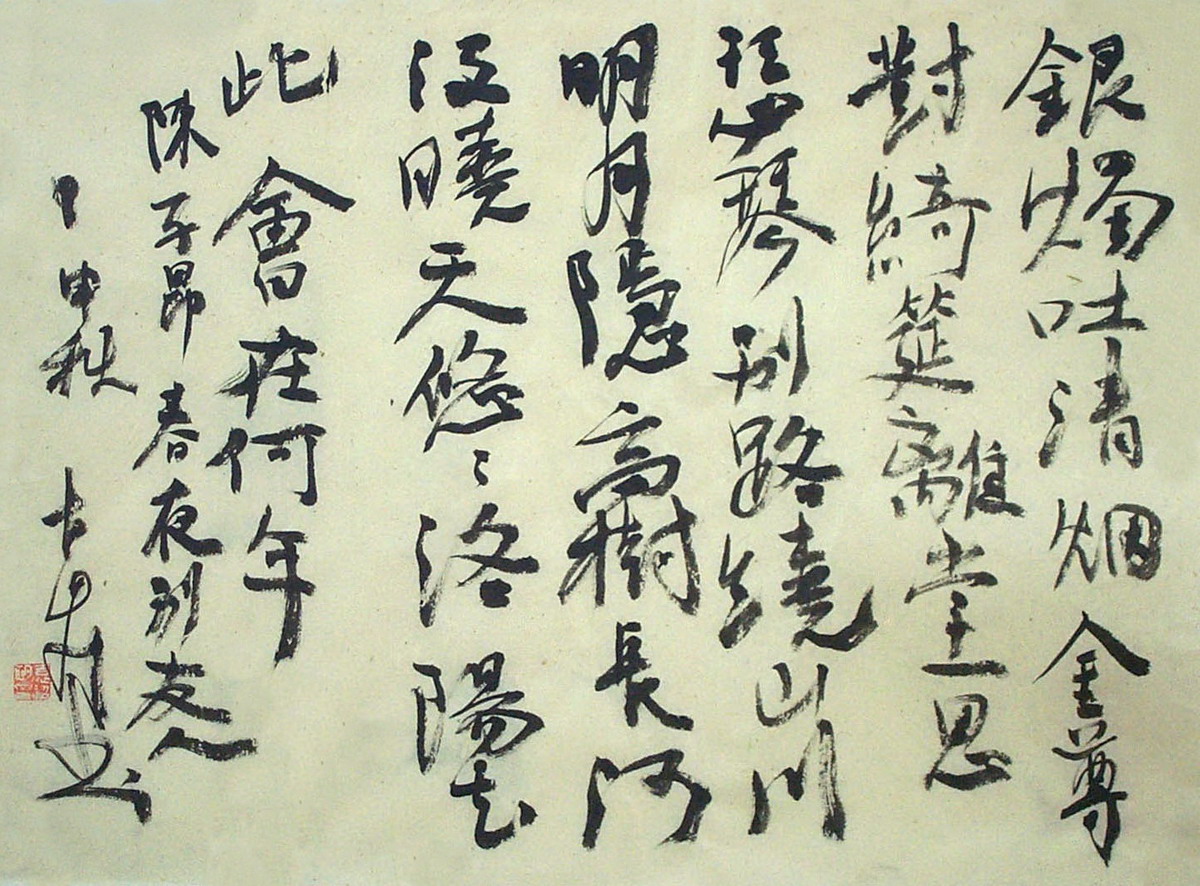 銀燭吐清烟金尊
對綺筵離堂思
瑟琴別路繞山川
明月隱高樹長河
沒曉天悠〻洛陽去
此會在何年
陳子昂春夜別友人
申秋